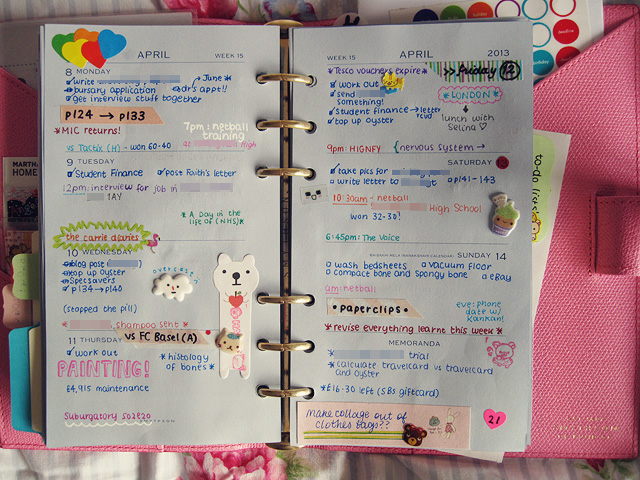 APRIL WEEK 15
8 MONDAY
write
June
bursary application
dr's appt!!
get interview stuff together
p124 → p133
*MIC returns!
7pm: netball
training
at High
vs Tactix (H) - won 60-40
9 TUESDAY
Student Finance
post Faith's letter
12pm: interview for job in
*A Day in the
life of (NHS)*
the carrie diaries
10 WEDNESDAY
blog post
top up Oyster
Specsavers
p134 → p140
overcast
(stopped the pill)
shampoo sent *
vs FC Basel (A)
11 THURSDAY
work out
PAINTING!
*histology
of bones*
£4,915 maintenance
Suburgatory S02E20
WEEK 15 APRIL 2013
*Tesco vouchers expire*
>> friday 12
work out
send
something!
Student finance → letter
top up oyster
*LONDON*
lunch with
Selina ♡
9pm: HIGNFY
{nervous system →
SATURDAY 13
take pics for
write letter to
p141-143
10:30am: netball
High School
won 32-30!
6:45pm: The Voice
SUNDAY 14
wash bedsheets
vacuum floor
compact bone and spongy bone
eBay
am: netball
• paperclips •
eve: phone
date w/
Kankan!
* revise everything learnt this week *
MEMORANDA
trial
calculate travelcard vs travelcard
and oyster
*£16-30 left (SBs giftcard)
make collage out of
clothes tags??
21
to-do list
MARTHA
HOME